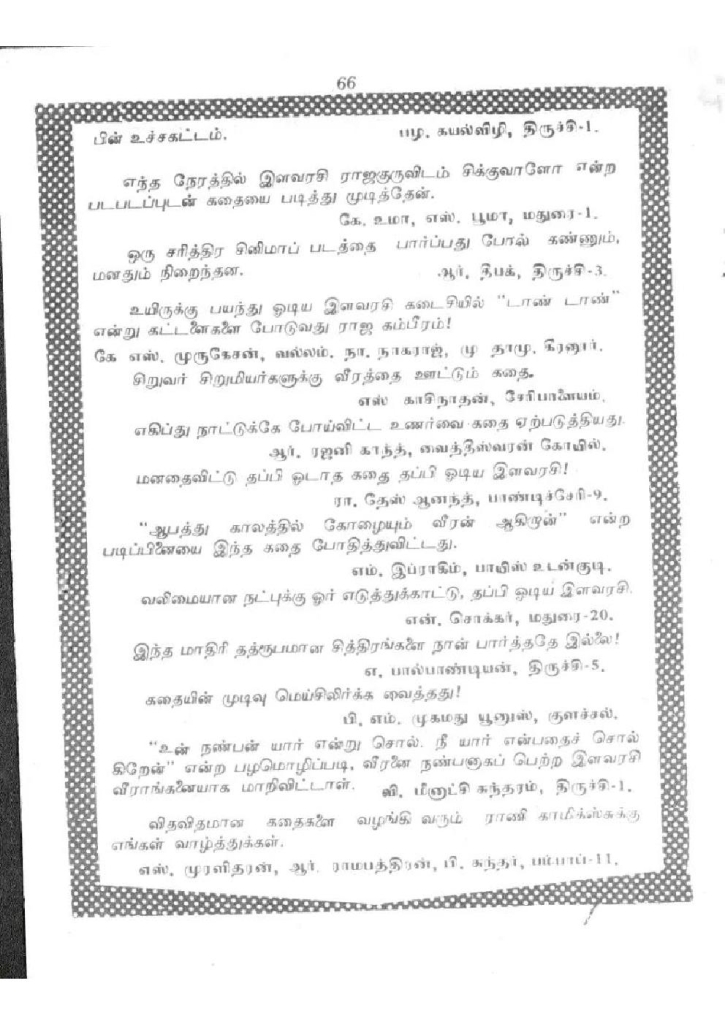 66
பின் உச்சகட்டம். பழ. கயல்விழி, திருச்சி-1.
எந்த நேரத்தில் இளவரசி ராஜகுருவிடம் சிக்குவாளோ என்ற
படபடப்புடன் கதையை படித்து முடித்தேன்.
கே. உமா, எஸ். பூமா, மதுரை-1.
ஒரு சரித்திர சினிமாப் படத்தை பார்ப்பது போல் கண்ணும்,
மனதும் நிறைந்தன. ஆர். தீபக், திருச்சி-3.
உயிருக்கு பயந்து ஓடிய இளவரசி கடைசியில் "டாண் டாண்"
என்று கட்டளைகளை போடுவது ராஜ கம்பீரம்!
கே எஸ். முருகேசன், வல்லம். நா. நாகராஜ், மு தாமு. கீரனூர்.
சிறுவர் சிறுமியர்களுக்கு வீரத்தை ஊட்டும் கதை.
எஸ் காசிநாதன், சேரிபாளையம்.
எகிப்து நாட்டுக்கே போய்விட்ட உணர்வை கதை ஏற்படுத்தியது.
ஆர். ரஜனி காந்த், வைத்தீஸ்வரன் கோயில்.
மனதைவிட்டு தப்பி ஓடாத கதை தப்பி ஓடிய இளவரசி!
ரா. தேஸ் ஆனந்த், பாண்டிச்சேரி-9.
"ஆபத்து காலத்தில் கோழையும் வீரன் ஆகிறான்" என்ற
படிப்பினையை இந்த கதை போதித்துவிட்டது.
எம். இப்ராகிம், பாயிஸ் உடன்குடி.
வலிமையான நட்புக்கு ஓர் எடுத்துக்காட்டு, தப்பி ஓடிய இளவரசி.
என். சொக்கர், மதுரை-20.
இந்த மாதிரி தத்ரூபமான சித்திரங்களை நான் பார்த்ததே இல்லை!
எ. பால்பாண்டியன், திருச்சி-5.
கதையின் முடிவு மெய்சிலிர்க்க வைத்தது!
பி. எம். முகமது யூனுஸ், குளச்சல்.
"உன் நண்பன் யார் என்று சொல். நீ யார் என்பதைச் சொல்
கிறேன்" என்ற பழமொழிப்படி, வீரனை நண்பனாகப் பெற்ற இளவரசி
வீராங்கனையாக மாறிவிட்டாள். வி. மீனாட்சி சுந்தரம், திருச்சி-1.
விதவிதமான கதைகளை வழங்கி வரும் ராணி காமிக்ஸ்சுக்கு
எங்கள் வாழ்த்துக்கள்.
எஸ். முரளிதரன், ஆர். ராமபத்திரன், பி. சுந்தர், பம்பாய்-11.